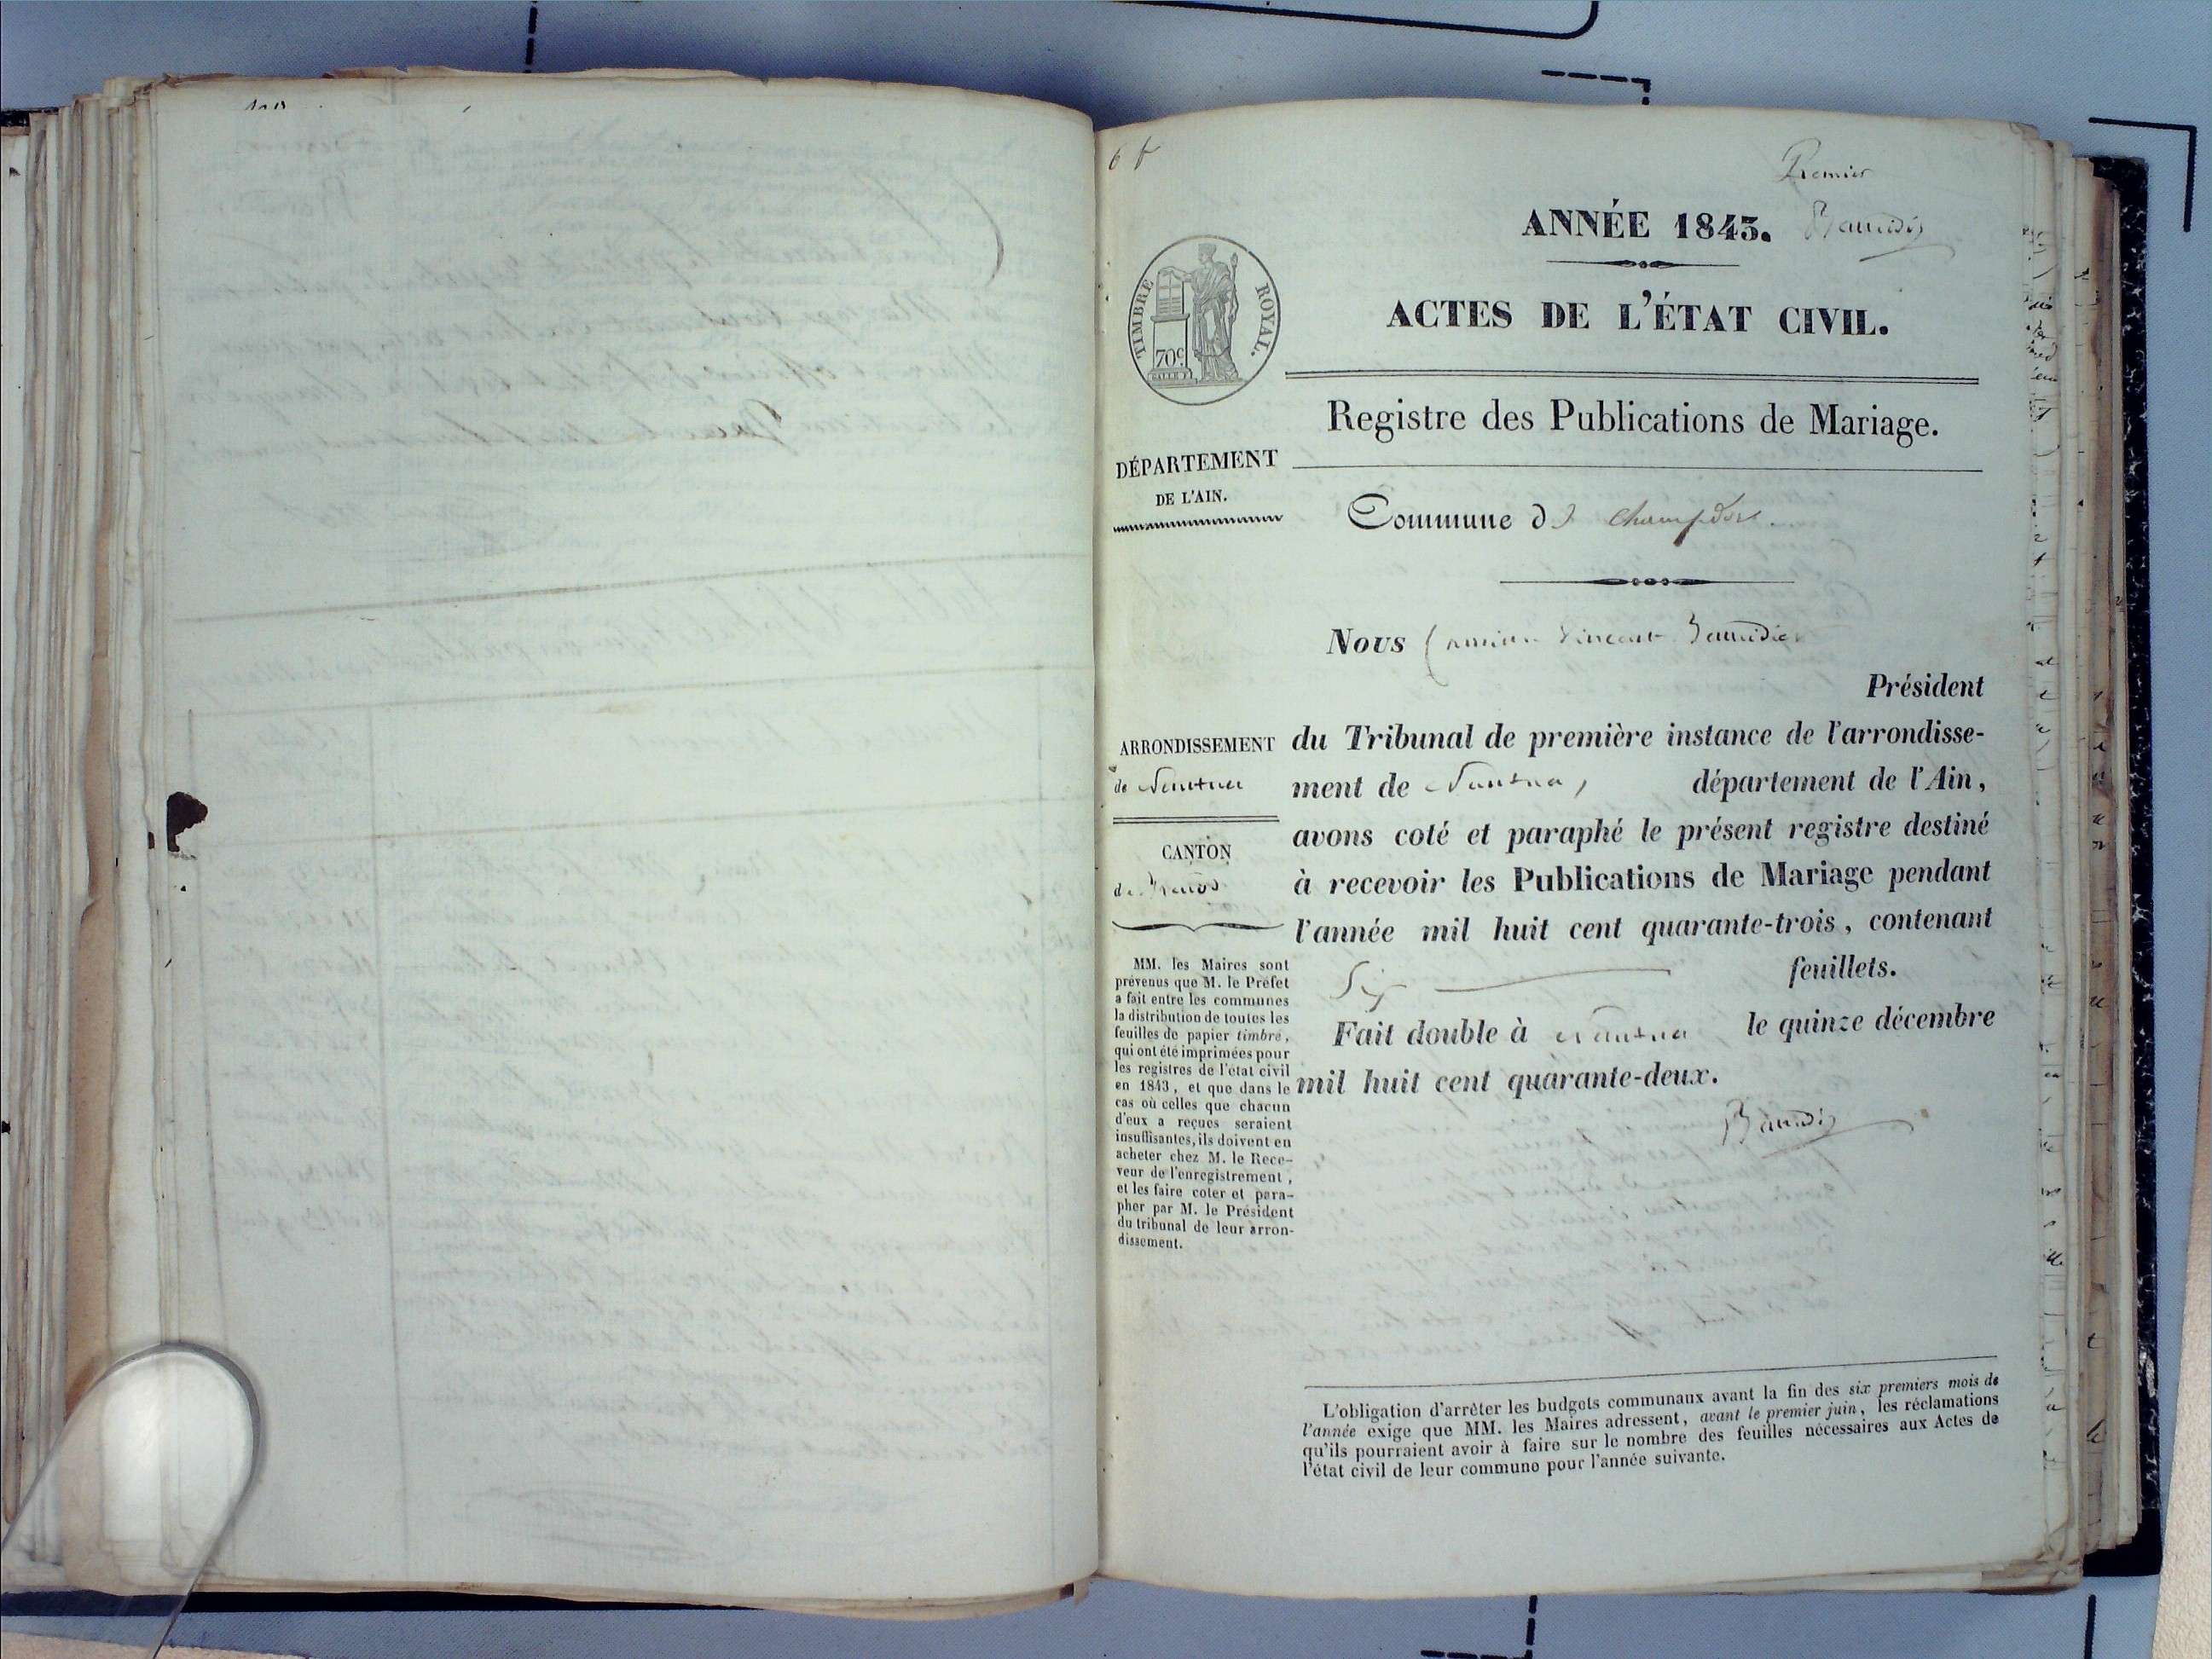 6 f
Premier
ANNÉE 1843. Baudier
ACTES DE L'ÉTAT CIVIL.
TIMBRE ROYAL.
70c
Registre des Publications de Mariage.
DÉPARTEMENT
DE L'AIN.
Commune de Champdor.
Nous Vincent Baudier
Président
ARRONDISSEMENT
de Nantua
du Tribunal de première instance de l'arrondisse-
ment de Nantua, département de l'Ain,
avons coté et paraphé le présent registre destiné
à recevoir les Publications de Mariage pendant
l'année mil huit cent quarante-trois, contenant
Six feuillets.
Fait double à Nantua le quinze décembre
mil huit cent quarante-deux.
Baudier
CANTON
de
MM. les Maires sont
prévenus que M. le Préfet
a fait entre les communes
la distribution de toutes les
feuilles de papier timbré,
qui ont été imprimées pour
les registres de l'état civil
en 1843, et que dans le
cas où celles que chacun
d'eux a reçues seraient
insuffisantes, ils doivent en
acheter chez M. le Rece-
veur de l'enregistrement,
et les faire coter et para-
pher par M. le Président
du tribunal de leur arron-
dissement.
L'obligation d'arrêter les budgets communaux avant la fin des six premiers mois de
l'année exige que MM. les Maires adressent, avant le premier juin, les réclamations
qu'ils pourraient avoir à faire sur le nombre des feuilles nécessaires aux Actes de
l'état civil de leur commune pour l'année suivante.